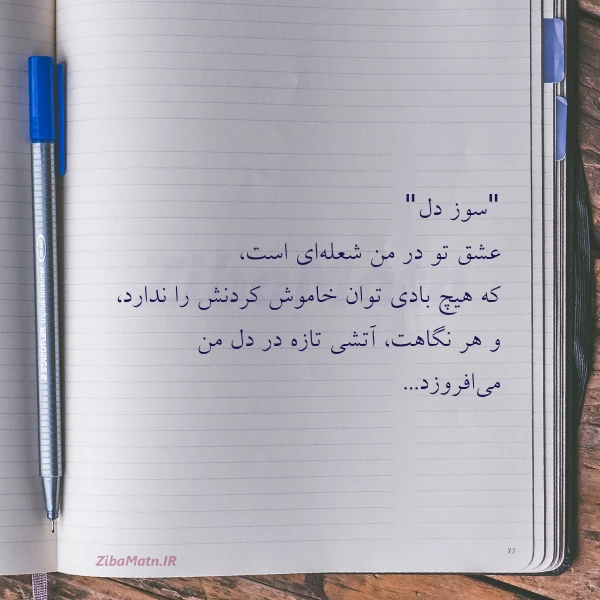 "سوز دل"
عشق تو در من شعله‌ای است،
که هیچ بادی توان خاموش کردنش را ندارد،
و هر نگاهت، آتشی تازه در دل من
می‌افروزد...
77
ZibaMatn.IR